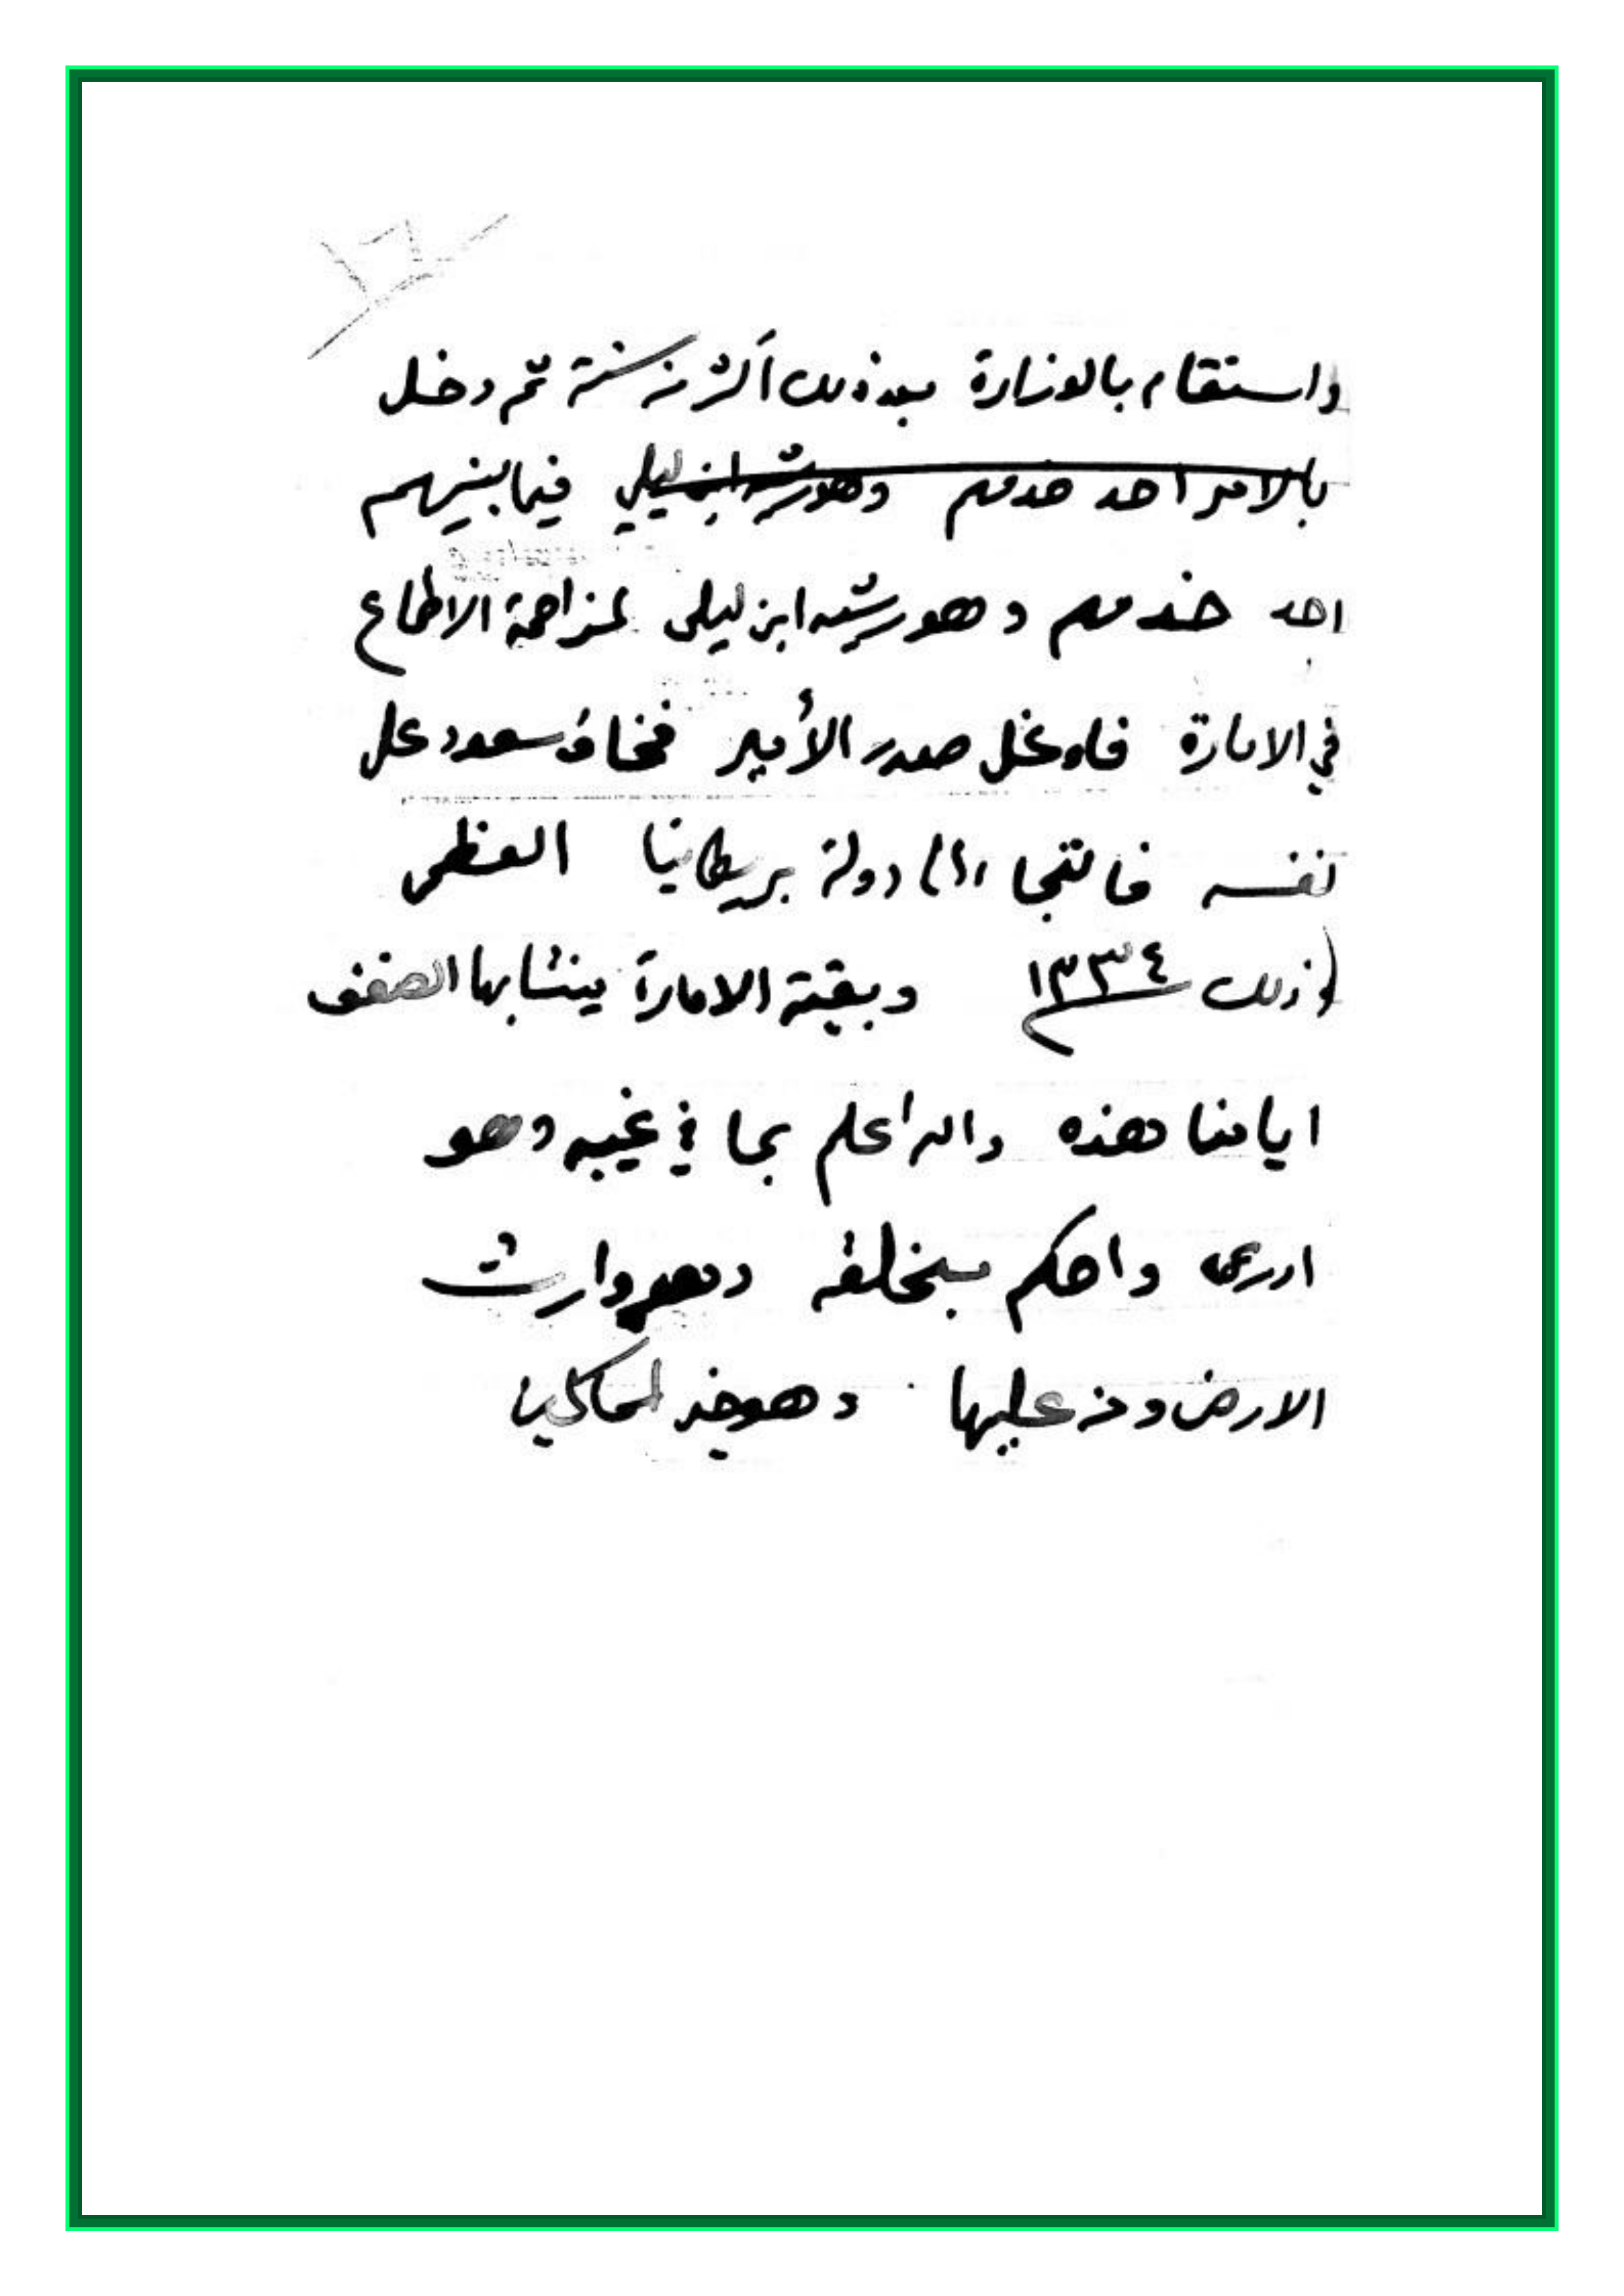 واستقام بالوزارة بعد ذلك أكثر من سنة ثم دخل
بالامر احد خدمهم وهو رشيد ابن ليلي فيما بينهم
احد خدمهم وهو رشيد ابن ليلى لمزاحمة الاطماع
في الامارة فاوغل صدر الأمير فخاف سعود على
نفسه فالتجا الى دولة بريطانيا العظمى
وذلك ١٣٣٤ وبقية الامارة ينشابها الضعف
ايامنا هذه والله اعلم بما في غيبه وهو
ادرى واحكم بخلقه وهو وارث
الارض ومن عليها وهو خير الحاكمين